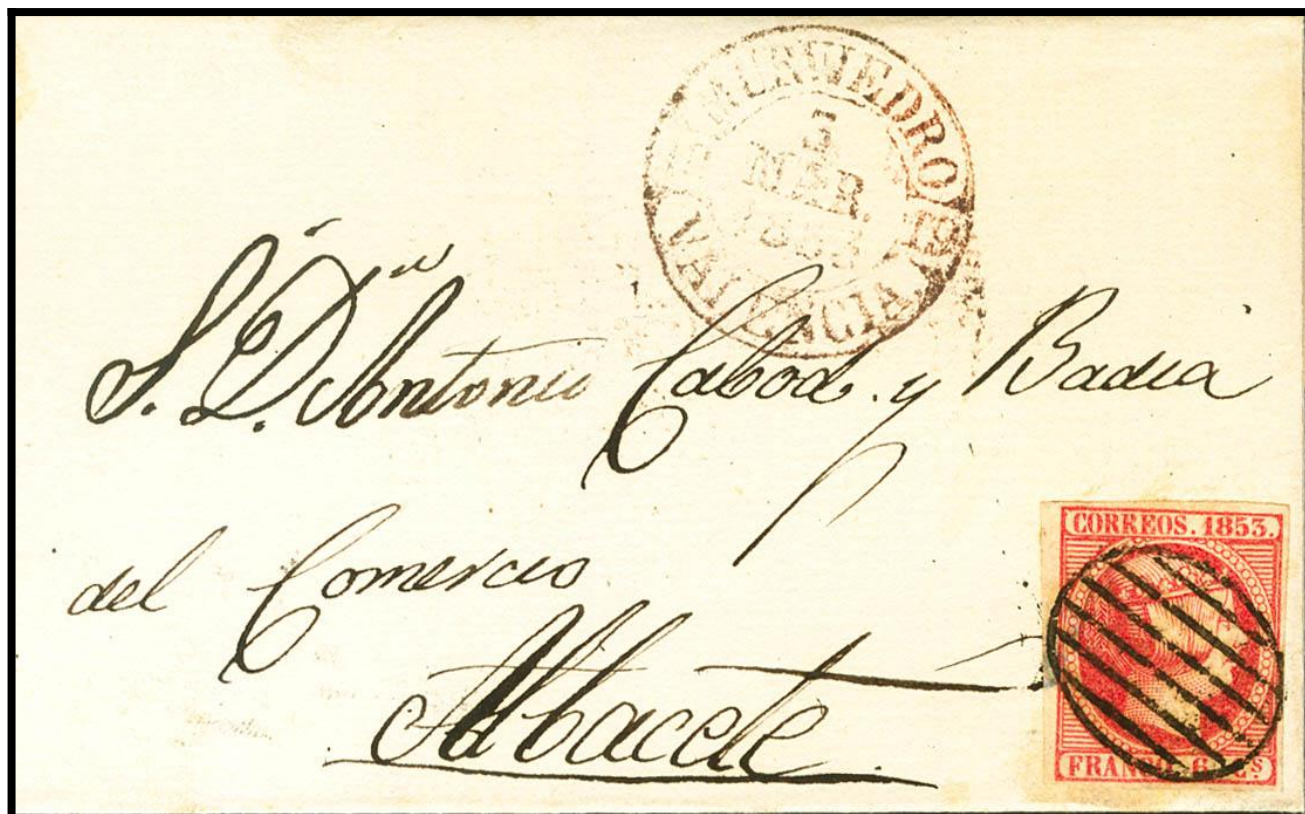 MURVIEDRO
MAR.
VALENCIA
S. D.ⁿ Antonio Cabod. y Badia
del Comercio
Albacete
CORREOS. 1853.
FRANCO. 6 C.ˢ